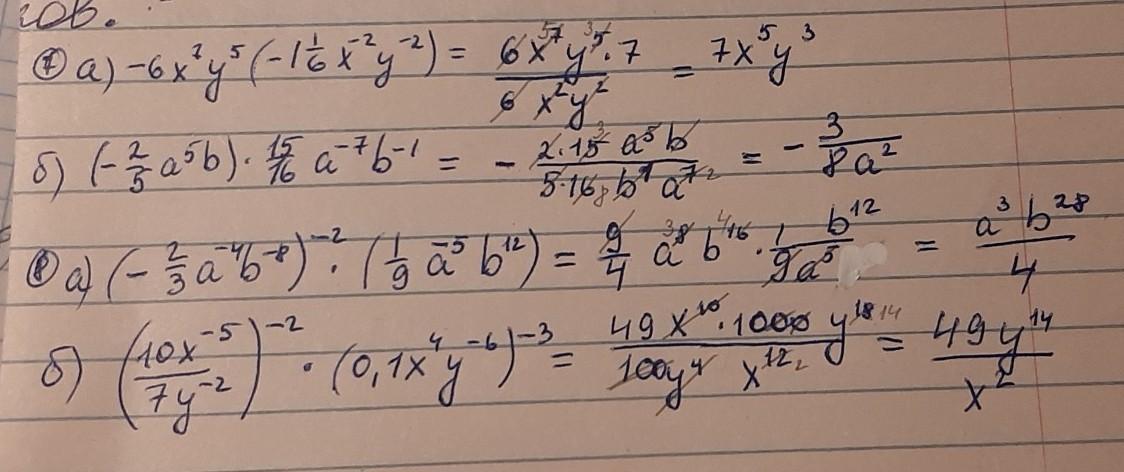 ⑦ а) -6x⁷y⁵(-1 1/6 x⁻²y⁻²) = 6x⁷y⁵·7 / 6x²y² = 7x⁵y³
б) (-2/5 a⁵b)·15/16 a⁻⁷b⁻¹ = - 2·15 a⁵b / 5·16 b¹a⁷ = - 3/8a²
⑧ а) (-2/3 a⁻⁴b⁻⁸)⁻²·(1/9 a⁻⁵b¹²) = 9/4 a⁸b¹⁶·1/9 b¹²/a⁵ = a³b²⁸/4
б) (10x⁻⁵/7y⁻²)⁻²·(0,1x⁴y⁻⁶)⁻³ = 49x¹⁰·1000y¹⁸ / 100y⁴x¹² = 49y¹⁴/x²